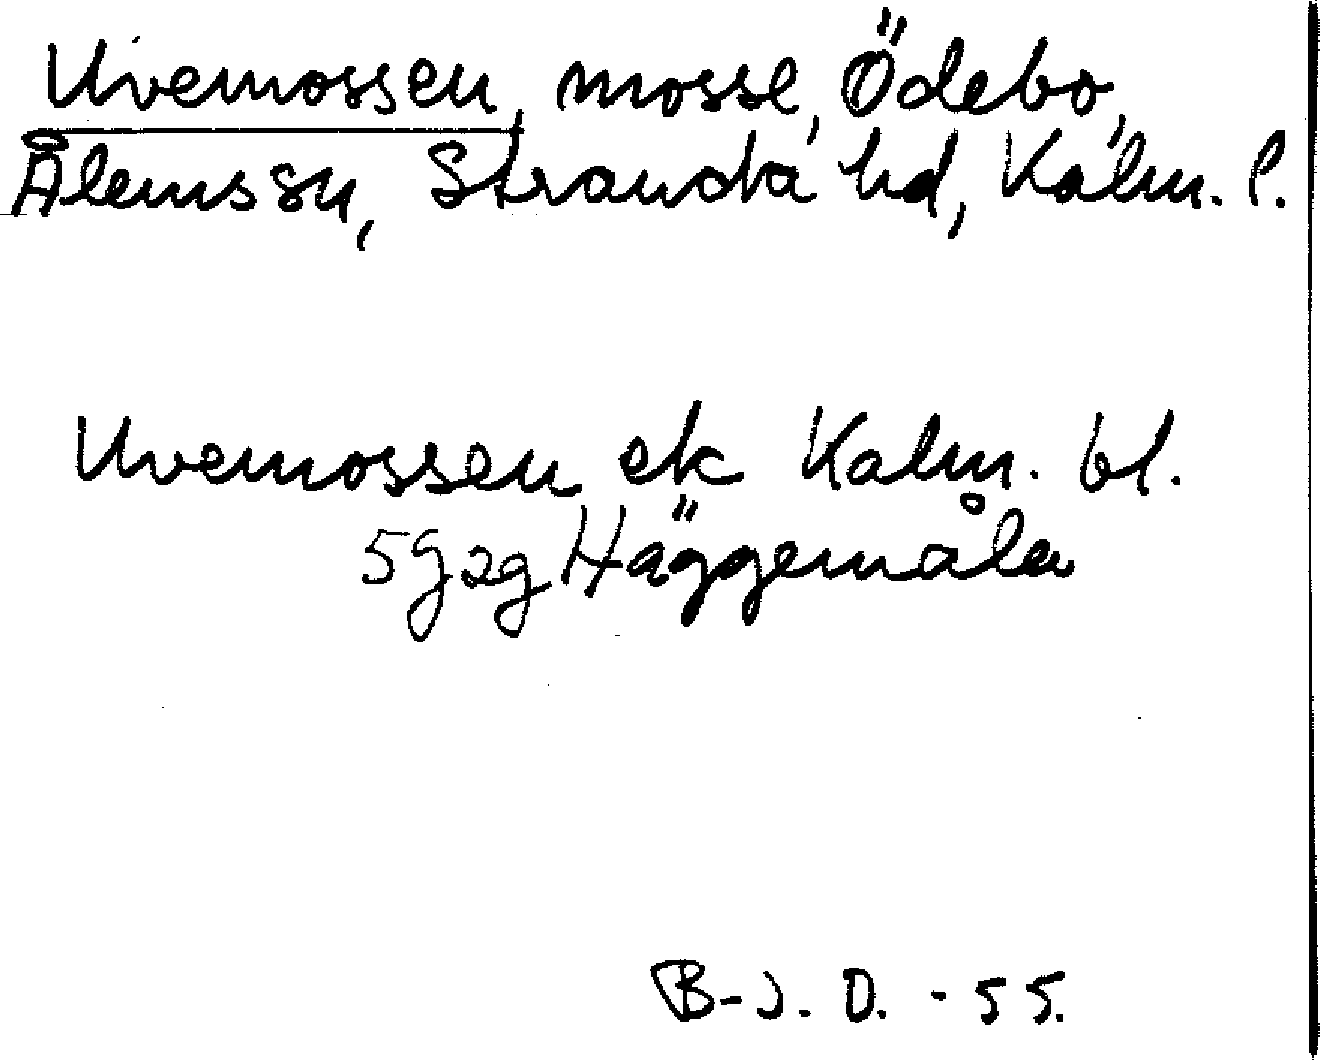 Uvemossen, mosse, Ödebo,
Ålems sn, Stranda hd, Kalm. l.
Uvemossen ek Kalm. bl.
5g2g Häggemåla
B-J. O. -55.